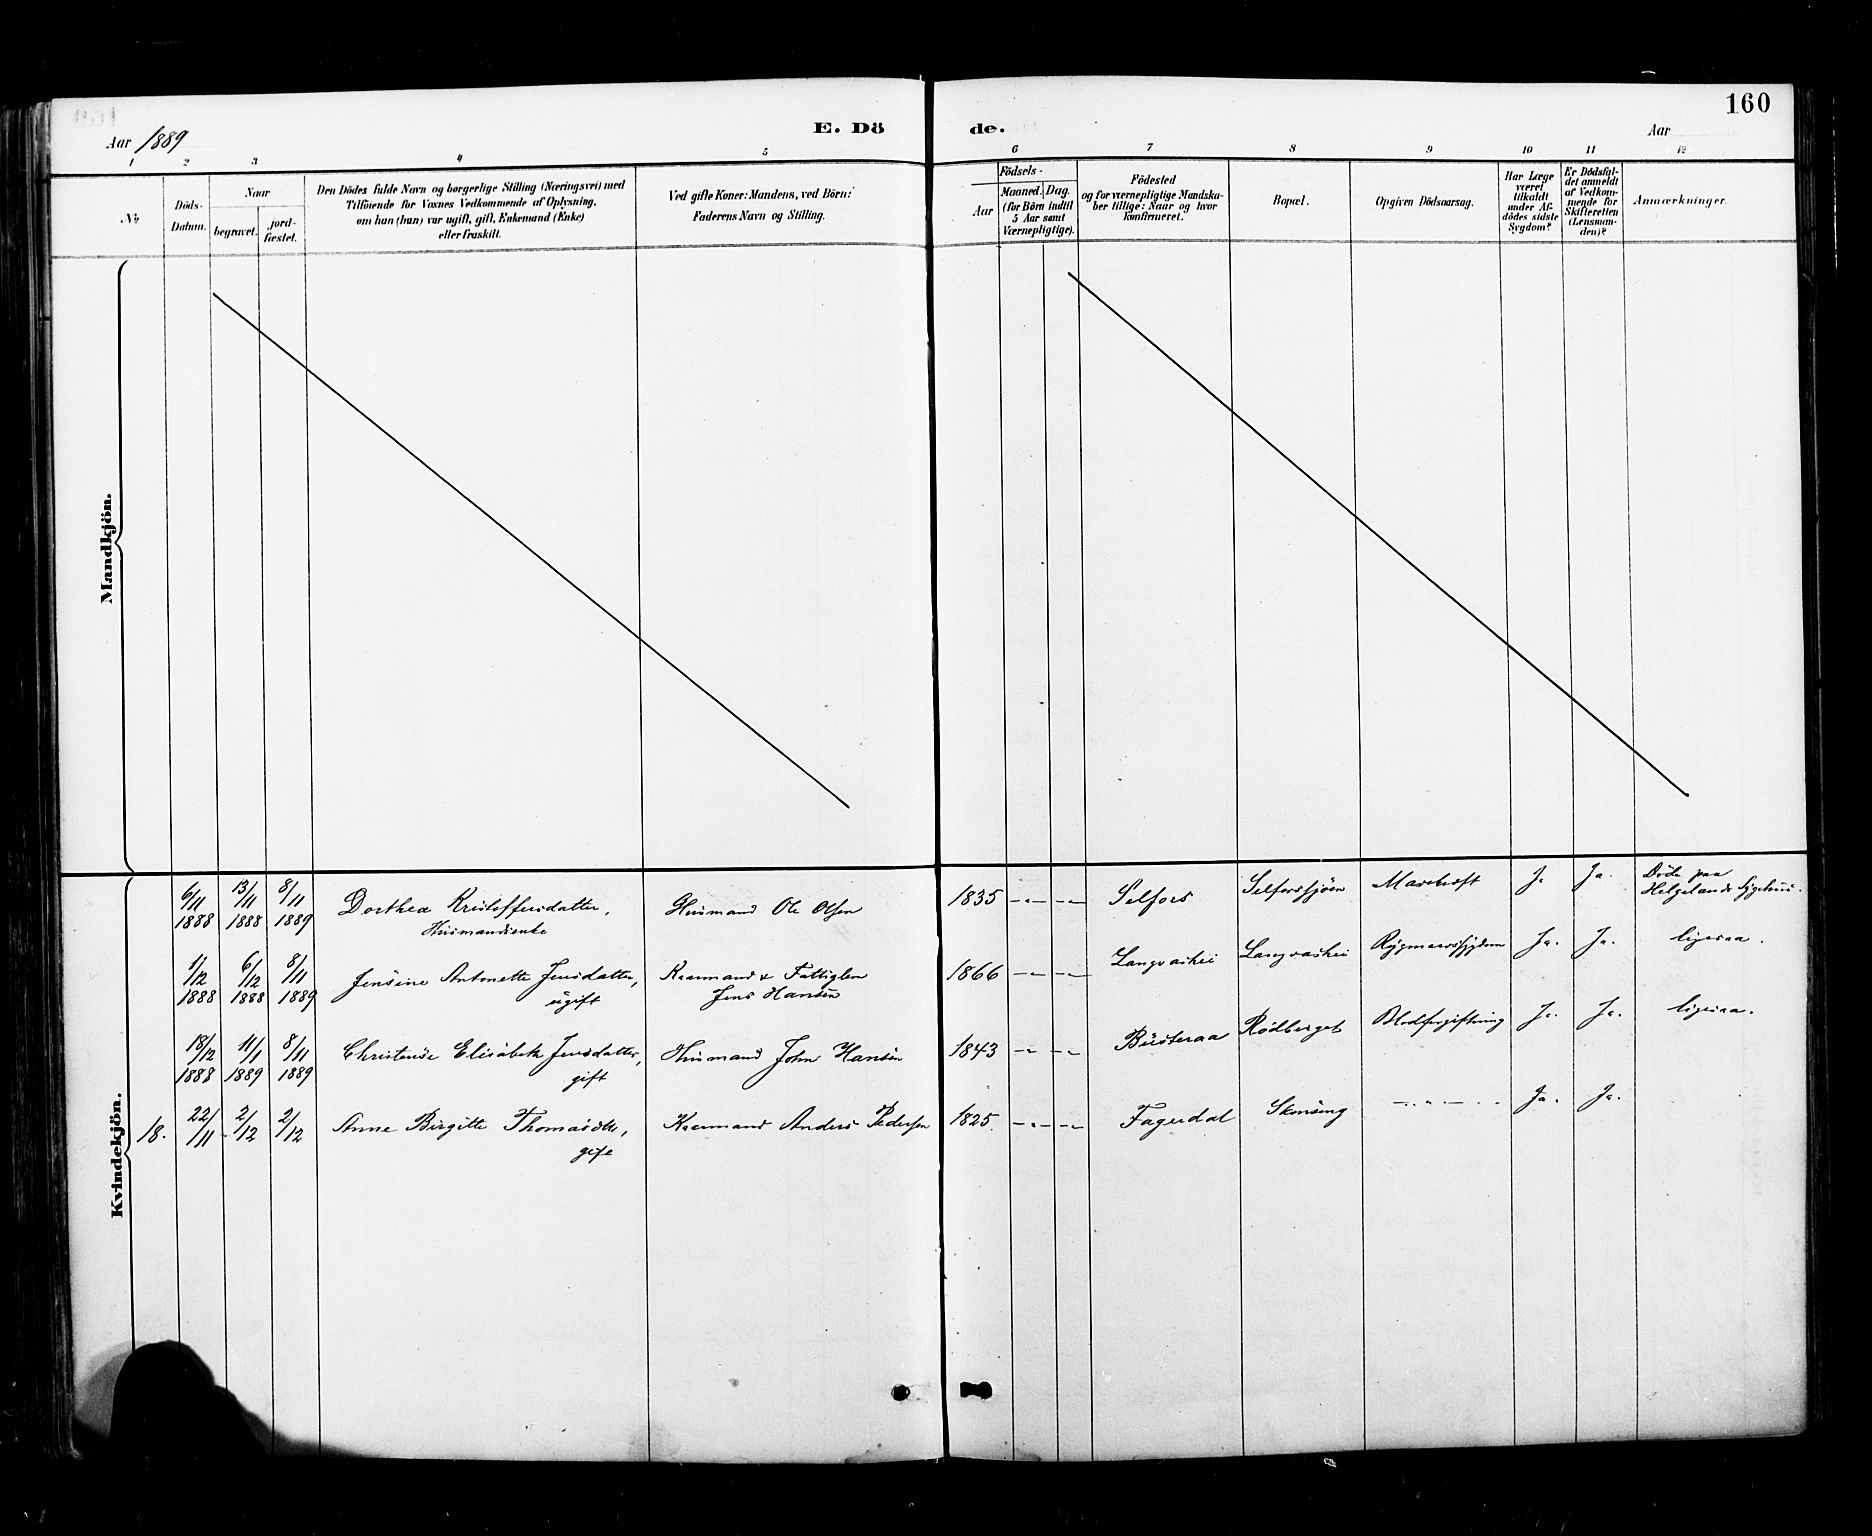 160
Aar 1889
E. Döde.
Aar
1 2 3 4 5 6 7 8 9 10 11 12
№
Döds-
Datum.
Naar
begravet.
jord-
fæstet.
Den Dödes fulde Navn og borgerlige Stilling (Næringsvei) med
Tilföiende for Voxnes Vedkommende af Oplysning,
om han (hun) var ugift, gift, Enkemand (Enke)
eller fraskilt.
Ved gifte Koner: Mandens, ved Börn:
Faderens Navn og Stilling.
Födsels-
Aar
Maaned. Dag.
(for Börn indtil
5 Aar samt
Værnepligtige).
Födested
og for værnepligtige Mandska-
ber tillige: Naar og hvor
konfirmeret.
Bopæl.
Opgiven Dödsaarsag.
Har Læge
været
tilkaldt
under Af-
dödes sidste
Sygdom?
Er Dödsfal-
det anmeldt
af Vedkom-
mende for
Skifteretten
(Lensman-
den)?
Anmærkninger.
Mandkjön.
Kvindekjön.
6/11 1888 13/11 1888 8/11 1889 Dorthea Kristoffersdatter, Husmand Ole Olsen 1835 -"- -"- Selfors Selforssjöen Mavekræft Ja Ja. Döde paa
Husmandsenke Helgelands Sygehus.
1/12 1888 6/12 1888 8/11 1889 Jensine Antonette Jensdatter, Kaarmand & Fattiglem 1866 -"- -"- Langvashei Langvashei Rygmarvssygdom Ja. Ja. ligesaa.
ugift Jens Hansen
18/12 1888 11/1 1889 8/11 1889 Christense Elisabeth Jensdatter, Husmand John Hansen 1843 -"- -"- Busteraa Rödberget Blodforgiftning Ja. Ja. ligesaa.
gift
18. 22/11 - 2/12 2/12 Anne Birgitte Thomasdtr, Kaarmand Anders Pedersen 1825. -"- -"- Fagerdal Skonseng -"- Ja. Ja.
gift